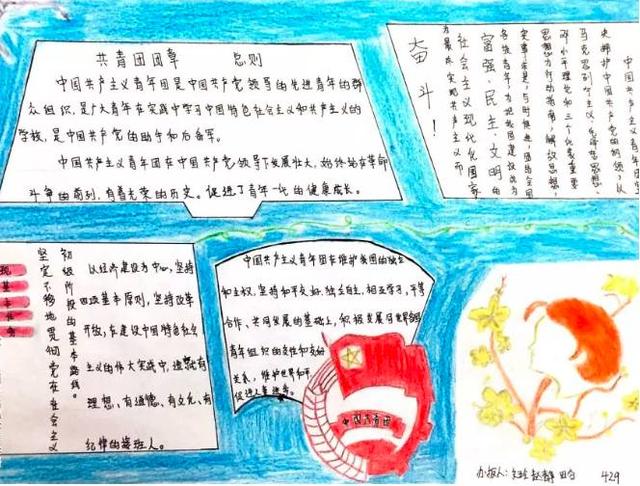 共青团团章 总则
中国共产主义青年团是中国共产党领导的先进青年的群
众组织,是广大青年在实践中学习中国特色社会主义和共产主义的
学校,是中国共产党的助手和后备军。
中国共产主义青年团在中国共产党领导下发展壮大,始终站在革命
斗争的前列,有着光荣的历史。促进了青年一代的健康成长。
中国共产主义青年团
央拥护中国共产党的纲领,以
马克思列宁主义、毛泽东思想、
邓小平理论和三个代表重要
思想为行动指南,解放思想,
实事求是,与时俱进,团结全国
各族青年,为把我国建设成为
富强、民主、文明的
社会主义现代化国家
为最终实现共产主义而
奋斗!
现
基
本
任
务
初级阶段的基本路线。
坚定不移地贯彻党在社会主义
以经济建设为中心,坚持
四项基本原则,坚持改革
开放,在建设中国特色社会
主义的伟大实践中,造就有
理想、有道德、有文化、有
纪律的接班人。
中国共产主义青年团在维护我国的独立
和主权,坚持和平友好,独立自主,相互学习,平等
合作、共同发展的基础上,积极发展同世界各国
青年组织的交往和友好
关系,维护世界和平
促进人类进步。
中国共青团
办报人:
429